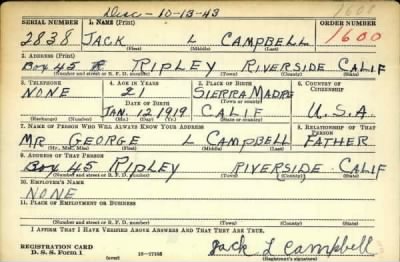 Disc - 10-13-43
1608
SERIAL NUMBER 1. NAME (Print) ORDER NUMBER
2838 JACK L CAMPBELL 1600
(First) (Middle) (Last)
2. ADDRESS (Print)
Box 45 RIPLEY RIVERSIDE CALIF
(Number and street or R. F. D. number) (Town) (County) (State)
3. TELEPHONE 4. AGE IN YEARS 5. PLACE OF BIRTH 6. COUNTRY OF CITIZENSHIP
NONE 21 SIERRA MADRE
(Town or county)
DATE OF BIRTH
JAN. 12 1919 CALIF U.S.A.
(Exchange) (Number) (Mo.) (Day) (Yr.) (State or country)
7. NAME OF PERSON WHO WILL ALWAYS KNOW YOUR ADDRESS 8. RELATIONSHIP OF THAT PERSON
MR GEORGE L CAMPBELL FATHER
(Mr., Mrs., Miss) (First) (Middle) (Last)
9. ADDRESS OF THAT PERSON
Box 45 RIPLEY RIVERSIDE CALIF
(Number and street or R. F. D. number) (Town) (County) (State)
10. EMPLOYER'S NAME
NONE
11. PLACE OF EMPLOYMENT OR BUSINESS
(Number and street or R. F. D. number) (Town) (County) (State)
I AFFIRM THAT I HAVE VERIFIED ABOVE ANSWERS AND THAT THEY ARE TRUE.
REGISTRATION CARD
D. S. S. Form 1 (over) 16-17105 Jack L Campbell
(Registrant's signature)